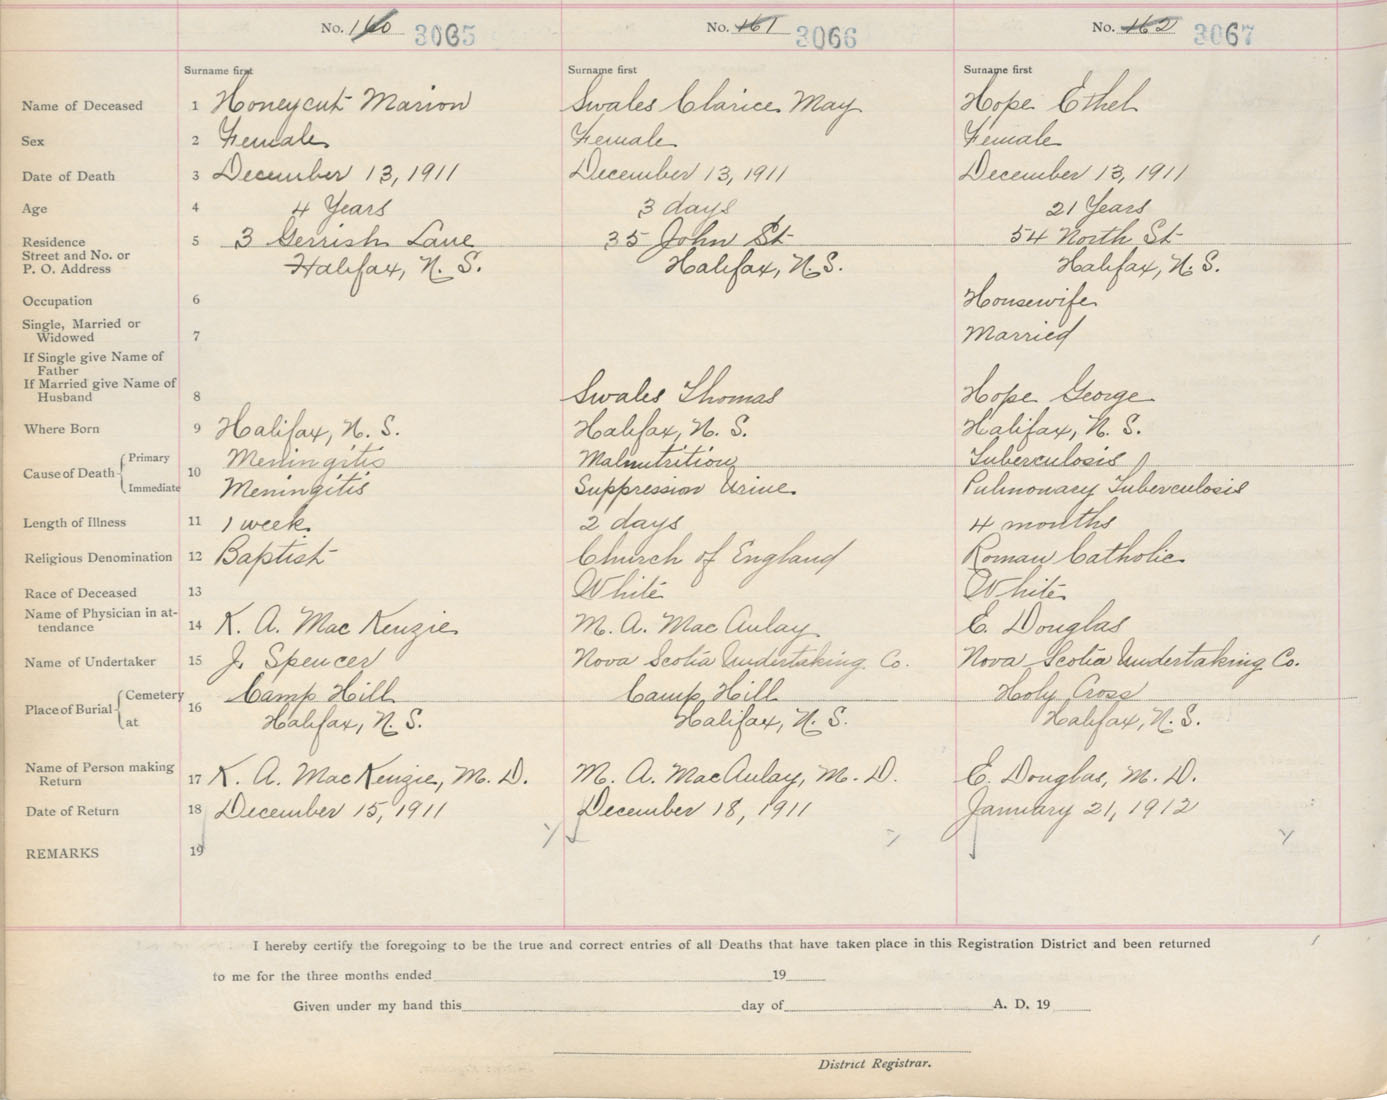 No. 160 3065 No. 161 3066 No. 162 3067
Surname first Surname first Surname first
Name of Deceased 1 Honeycut Marion Swales Clarice May Hope Ethel
Sex 2 Female Female Female
Date of Death 3 December 13, 1911 December 13, 1911 December 13, 1911
Age 4 4 Years 3 days 21 Years
Residence 5 3 Gerrish Lane 35 John St 54 North St
Street and No. or
P. O. Address Halifax, N. S. Halifax, N. S. Halifax, N. S.
Occupation 6 Housewife
Single, Married or
Widowed 7 Married
If Single give Name of
Father
If Married give Name of
Husband 8 Swales Thomas Hope George
Where Born 9 Halifax, N. S. Halifax, N. S. Halifax, N. S.
Primary Meningitis Malnutrition Tuberculosis
Cause of Death 10
Immediate Meningitis Suppression Urine Pulmonary Tuberculosis
Length of Illness 11 1 week 2 days 4 months
Religious Denomination 12 Baptist Church of England Roman Catholic
Race of Deceased 13 White White
Name of Physician in at-
tendance 14 K. A. MacKenzie M. A. MacAulay E. Douglas
Name of Undertaker 15 J. Spencer Nova Scotia Undertaking Co. Nova Scotia Undertaking Co.
Cemetery Camp Hill Camp Hill Holy Cross
Place of Burial 16
at Halifax, N. S. Halifax, N. S. Halifax, N. S.
Name of Person making
Return 17 K. A. MacKenzie, M. D. M. A. MacAulay, M. D. E. Douglas, M. D.
Date of Return 18 December 15, 1911 December 18, 1911 January 21, 1912
REMARKS 19
I hereby certify the foregoing to be the true and correct entries of all Deaths that have taken place in this Registration District and been returned
to me for the three months ended 19
Given under my hand this day of A. D. 19
District Registrar.